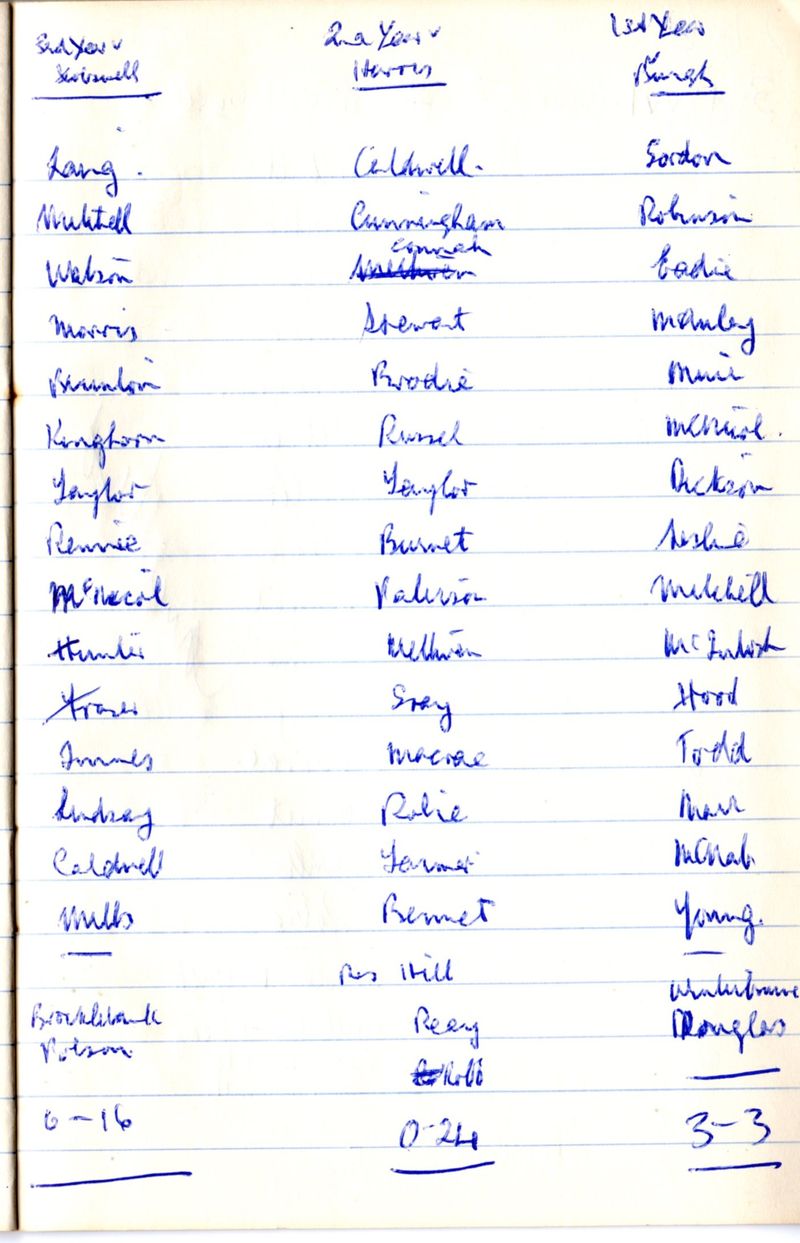 3rd Year v 2nd Year v 1st Year
Harris Burgh
Lang. Caldwell. Gordon
Mitchell Cunningham Robinson
Connah
Watson Methven Eadie
Morris Stewart
Muir
Brodie
Kinghorn Russel McNicol.
Taylor Taylor Dickson
Rennie Burnet Leslie
McNicol Paterson Mitchell
Hunter Methven McIntosh
Fraser Gray Hood
Innes Macrae Todd
Lindsay Robie Marr
Caldwell Farmer McNab
Mills Bennet Young.
Res Hill
Brocklebank Reay Douglas
Polson
Robb
0-16 0-24 3-3